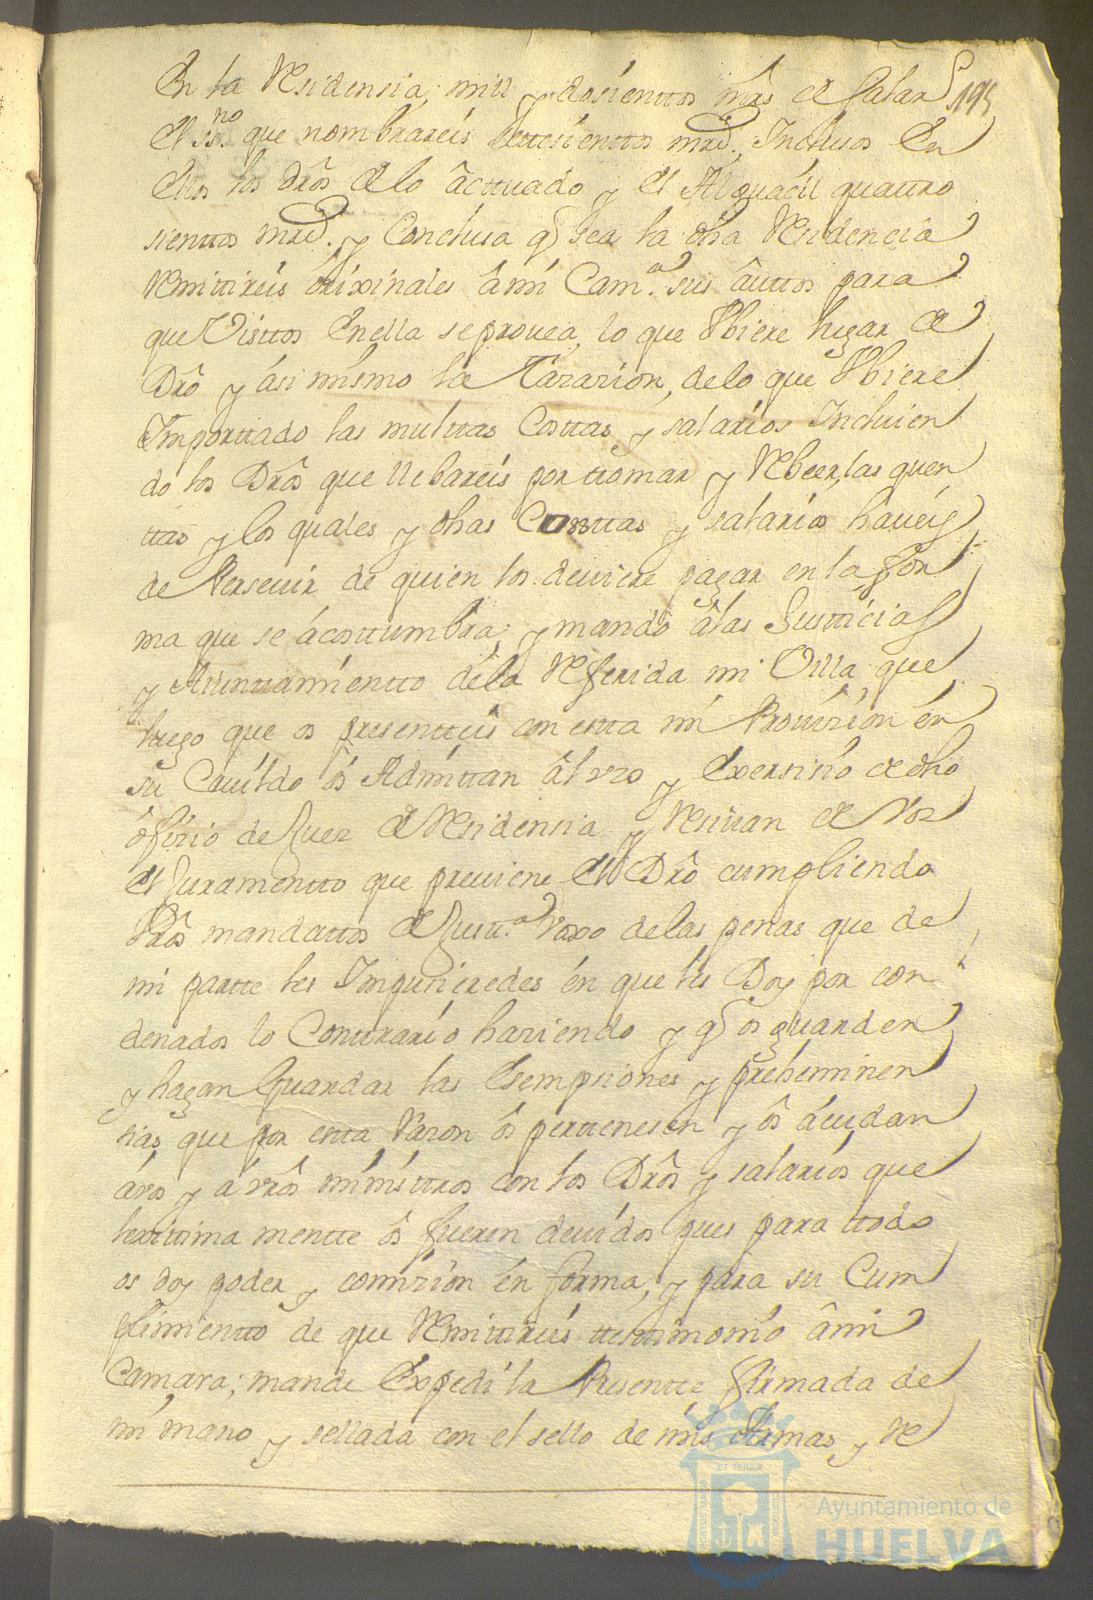 En la Residensia, mill y dosienttos mrs de Salar
195
El ss.no que nombrareis settesienttos mrs. Inclusos En
Ellos los Dros de lo acttuado y el Alguacil quattro
sienttos mrs. y Conclusa q sea la dha Residencia
Remitireis orixinales a mi Cam.a sus auttos para
que Visttos En ella se provea, lo que Ubiere lugar de
Dro y asi mismo la Tazazion, de lo que Ubiere
Importtado las multtas Costtas y salarios Incluien
do los Dros que llebareis por ttomar y Rbeer, las quen
ttas y los quales y dhas Costtas y salarios haveis
de Persevir de quien los deviere pagar en la for
ma que se acosttumbra; y mando a las Justticias
y Aiunttamientto de la Referida mi Villa, que
luego que os presentteis con estta mi Provizion en
su Cavildo os Admittan al vzo y Exersisio de dho
ofizio de Juez de Residensia y Resivan de Vos
el Juramentto que previene el Dro cumpliendo
Vros mandattos de Justt.a vaxo de las penas que de
mi partte les Impusieredes en que les Doy por con
denados lo Conttrario haziendo y q os guarden
y hagan Guardar las Esempsiones y preheminen
sias que por estta Razon os perttenesen y os acudan
a vos y a vros ministtros con los Dros y salarios que
lexittima mentte os fueren devidos pues para ttodo
os doy poder y comizion en forma, y para su Cum
plimientto de que Remittireis ttesttimonio a mi
Camara; mande Expedi la Presentte firmada de
mi mano y sellada con el sello de mis Armas y Re
Ayuntamiento de
HUELVA